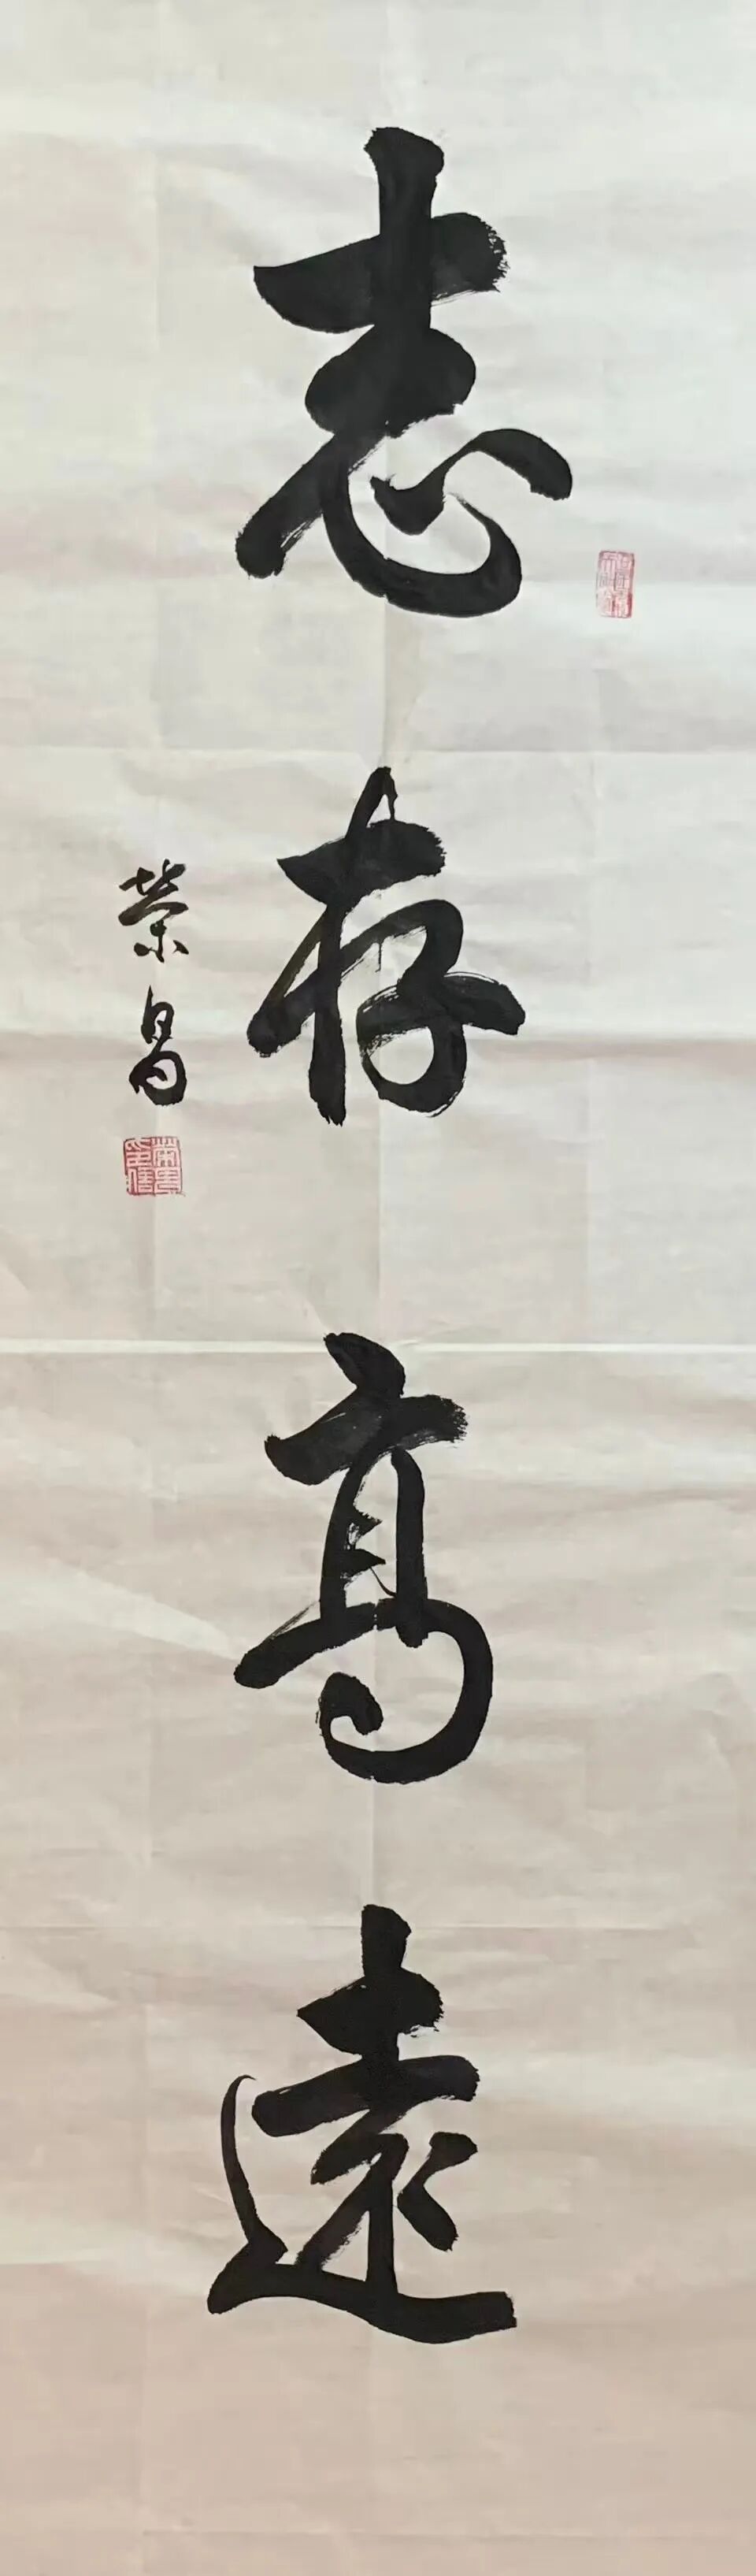 志存高遠
榮昌